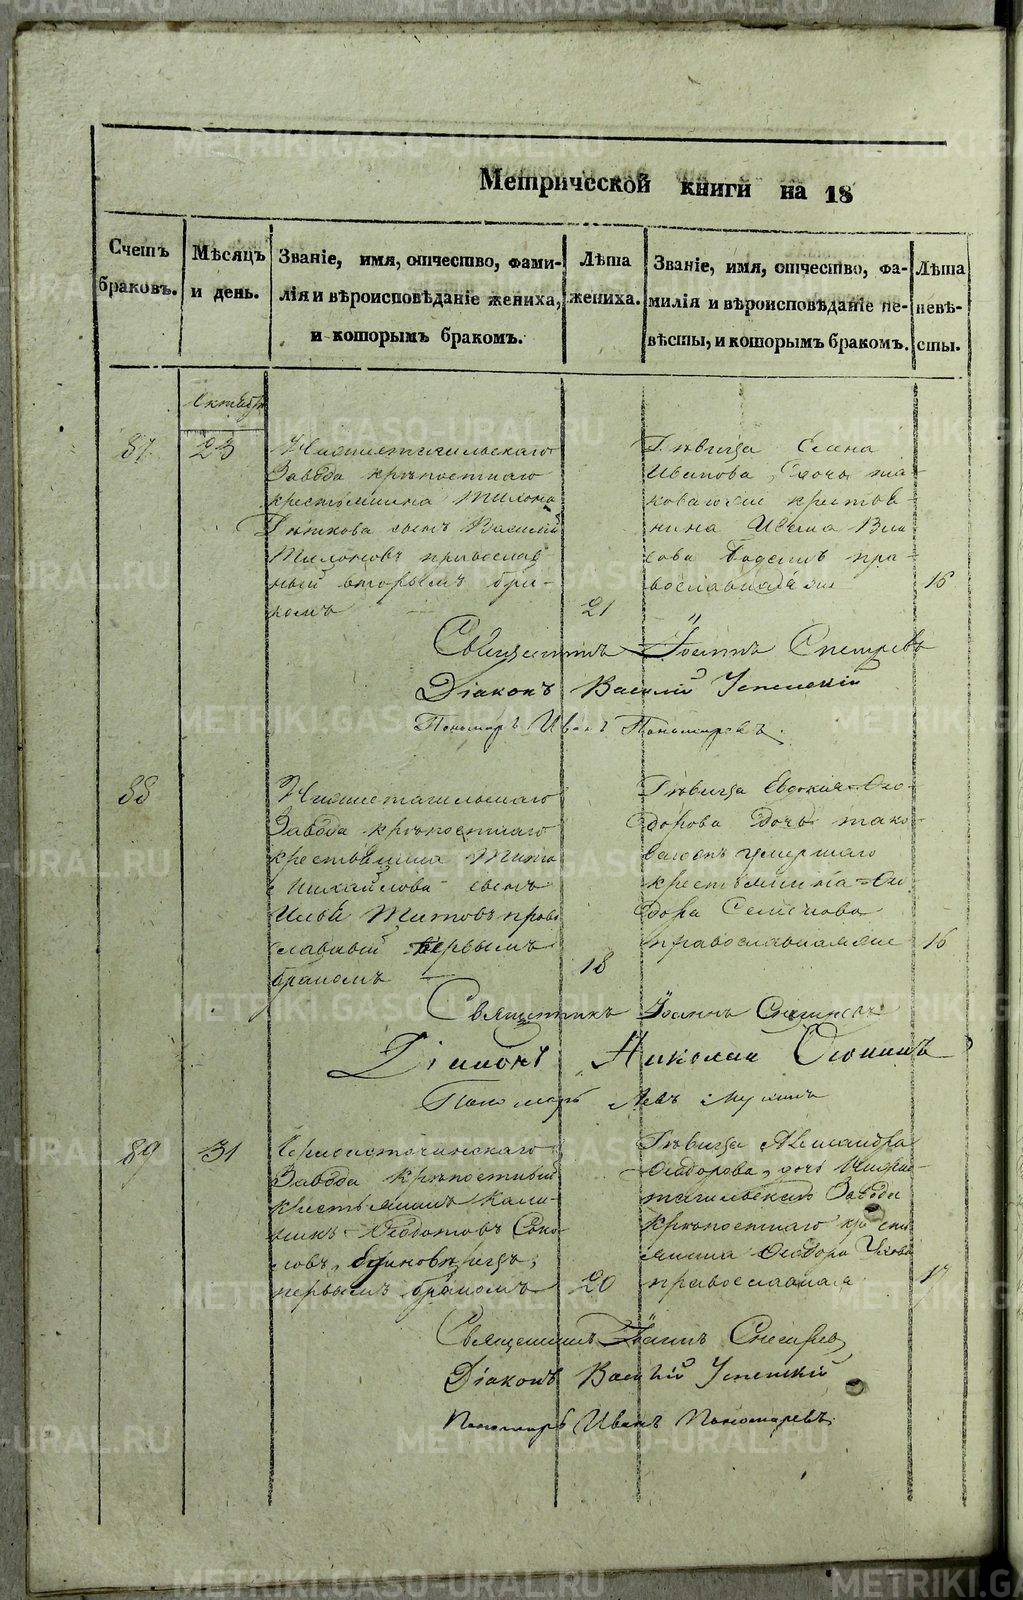 Метрической книги на 18
Счетъ браковъ.
Мѣсяцъ и день.
Званіе, имя, отчество, фами-
лія и вѣроисповѣданіе жениха,
и которымъ бракомъ.
Лѣта
жениха.
Званіе, имя, отчество, фа-
милія и вѣроисповѣданіе не-
вѣсты, и которымъ бракомъ.
Лѣта
невѣ-
сты.
Октябрь
87.
23
Нижнетагильскаго
Завода крѣпостнаго
крестьянина Тихона
сынъ Василій
Тихоновъ православ
ный вторымъ бра-
комъ
21
Дѣвица Елена
Иванова, дочь та-
коваго же крестья
нина Ивана
пра-
вославная
16
Священникъ Іоаннъ
Діаконъ Василій Успенскій
Пономарь Иванъ Пономаревъ.
88
Нижнетагильскаго
Завода крѣпостнаго
крестьянина Тита
Михайлова сынъ
Титовъ право
славный первымъ
бракомъ
18
Дѣвица Евдокія Ѳео-
дорова дочь тако
умершаго
крестьянина Ѳео
дора Семенова
православная
16
Священникъ Іоаннъ
Діаконъ Николай
Пономарь Левъ
89
31
Черноисточинскаго
Завода крѣпостный
крестьянинъ
Ѳедотовъ Соко
ловъ, единовѣрецъ,
первымъ бракомъ
20
Дѣвица Александра
Ѳеодорова, дочь Нижне-
тагильскаго Завода
крѣпостнаго кре
янина Ѳеодора
православная
17
Священникъ Іоаннъ
Діаконъ Василій Успенскій
Пономарь Иванъ Пономаревъ.
METRIKI.GASO-URAL.RU